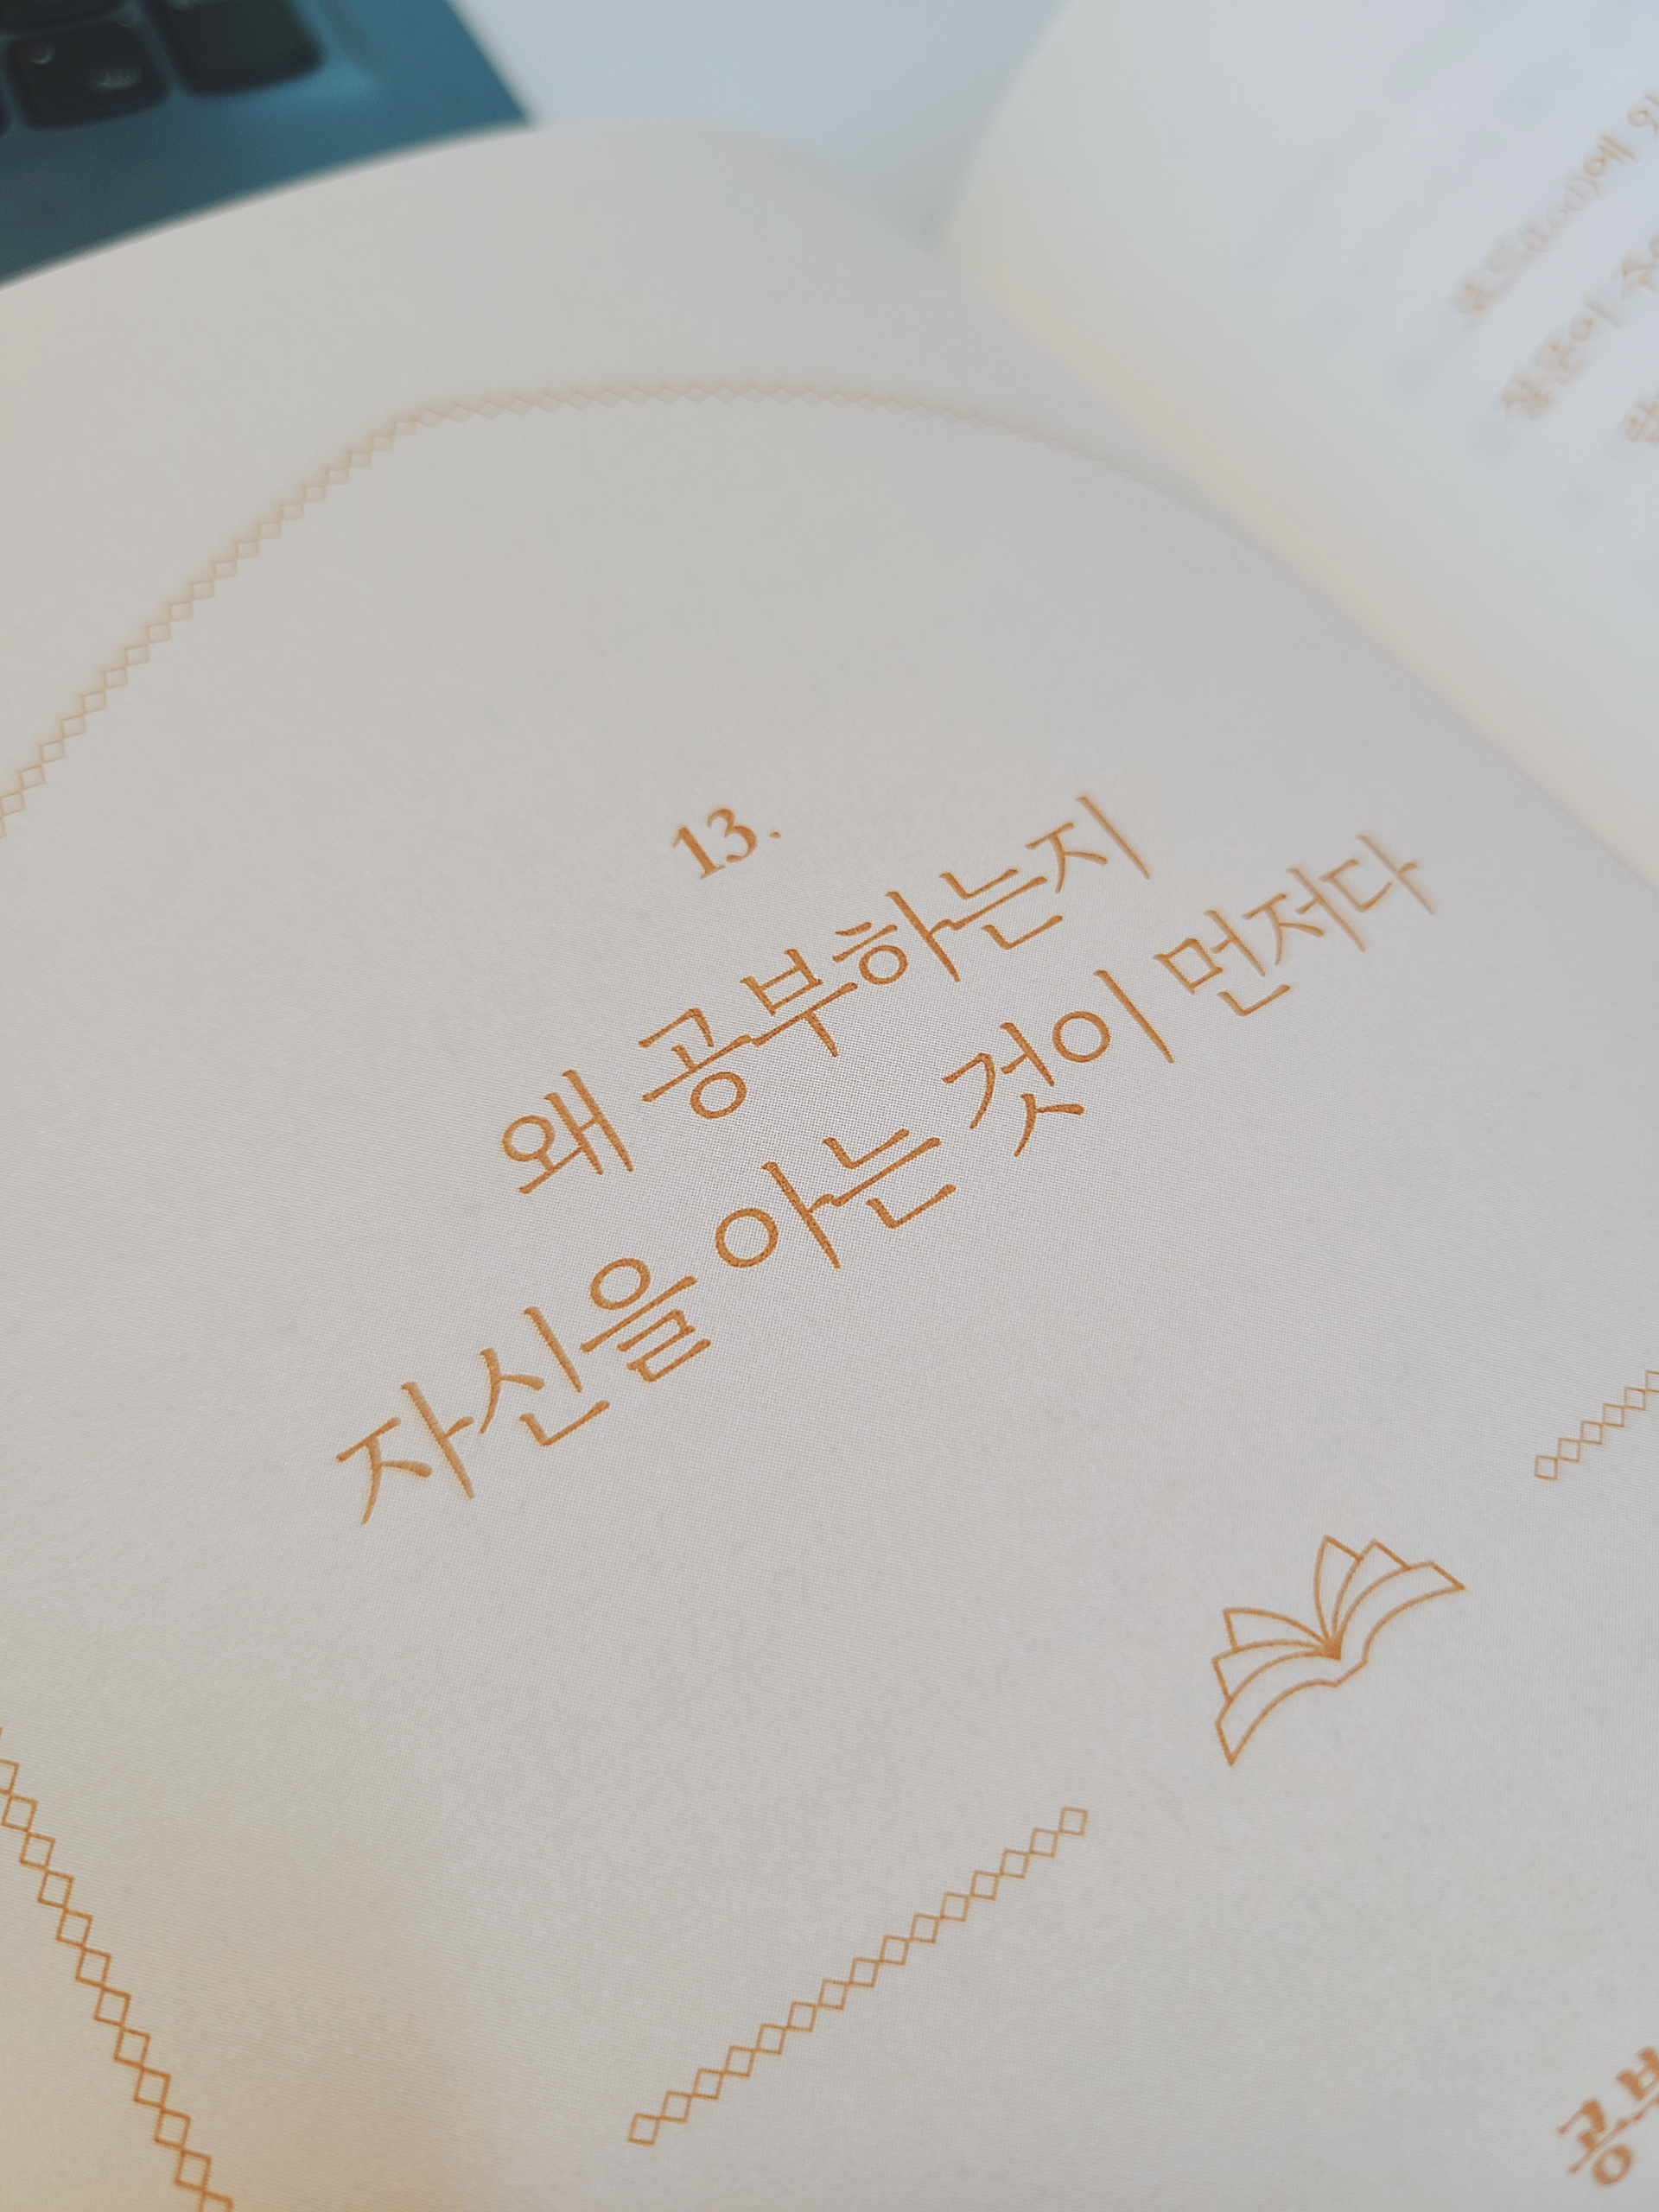 13.
왜 공부하는지
자신을 아는 것이 먼저다